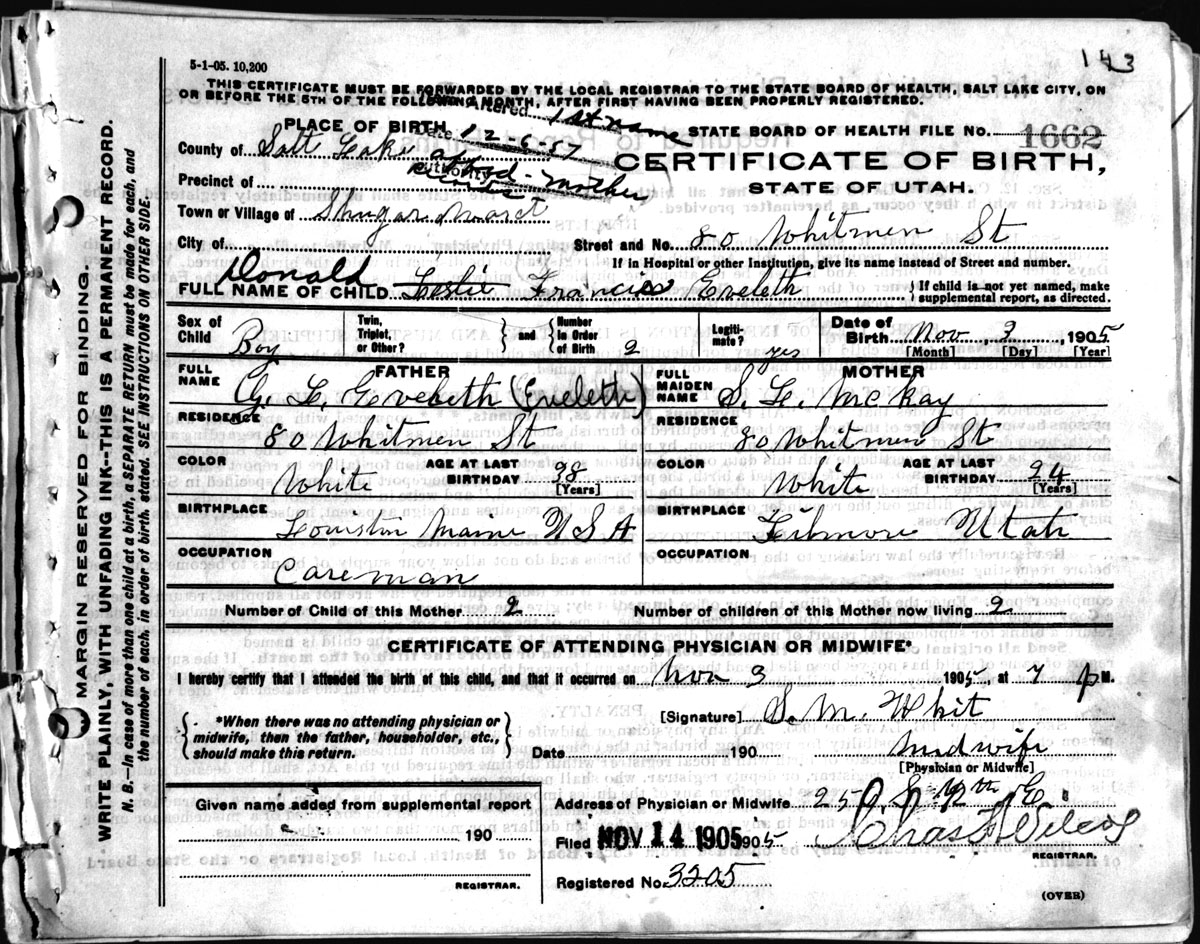 143
5-1-05. 10,200
THIS CERTIFICATE MUST BE FORWARDED BY THE LOCAL REGISTRAR TO THE STATE BOARD OF HEALTH, SALT LAKE CITY, ON
OR BEFORE THE 5TH OF THE FOLLOWING MONTH, AFTER FIRST HAVING BEEN PROPERLY REGISTERED.
1st name
PLACE OF BIRTH Date 12-6-57 STATE BOARD OF HEALTH FILE NO. 1662
County of Salt Lake
CERTIFICATE OF BIRTH,
Authority mother
Precinct of
STATE OF UTAH.
Town or Village of Shugar Ward
City of Street and No. 80 Whitmen St
If in Hospital or other Institution, give its name instead of Street and number.
Donald
FULL NAME OF CHILD Leslie Francis Eveleth { If child is not yet named, make supplemental report, as directed.
Sex of Child Boy Twin, Triplet, or Other? } and { Number in Order of Birth 2 Legiti- mate? yes Date of Birth Nov, 3, 1905
[Month] [Day] [Year]
FATHER MOTHER
FULL NAME G. L. Evebeth (Eveleth) FULL MAIDEN NAME S. L. McKay
RESIDENCE 80 Whitmen St RESIDENCE 80 Whitmen St
COLOR White AGE AT LAST BIRTHDAY 38 [Years] COLOR White AGE AT LAST BIRTHDAY 24 [Years]
BIRTHPLACE Louiston Maine USA BIRTHPLACE Filmore Utah
OCCUPATION Careman OCCUPATION
Number of Child of this Mother 2 Number of children of this Mother now living 2
CERTIFICATE OF ATTENDING PHYSICIAN OR MIDWIFE*
I hereby certify that I attended the birth of this child, and that it occurred on Nov 3 1905, at 7 P M.
{ *When there was no attending physician or midwife, then the father, householder, etc., should make this return. }
[Signature] S. M. Whit
Date 190 Midwife
[Physician or Midwife]
Given name added from supplemental report
190
REGISTRAR.
Address of Physician or Midwife
Filed NOV 14 1905 1905 Chas Wilcox
REGISTRAR.
Registered No. 3205
(OVER)
MARGIN RESERVED FOR BINDING.
WRITE PLAINLY, WITH UNFADING INK--THIS IS A PERMANENT RECORD.
N. B.--In case of more than one child at a birth, a SEPARATE RETURN must be made for each, and
the number of each, in order of birth, stated. SEE INSTRUCTIONS ON OTHER SIDE.